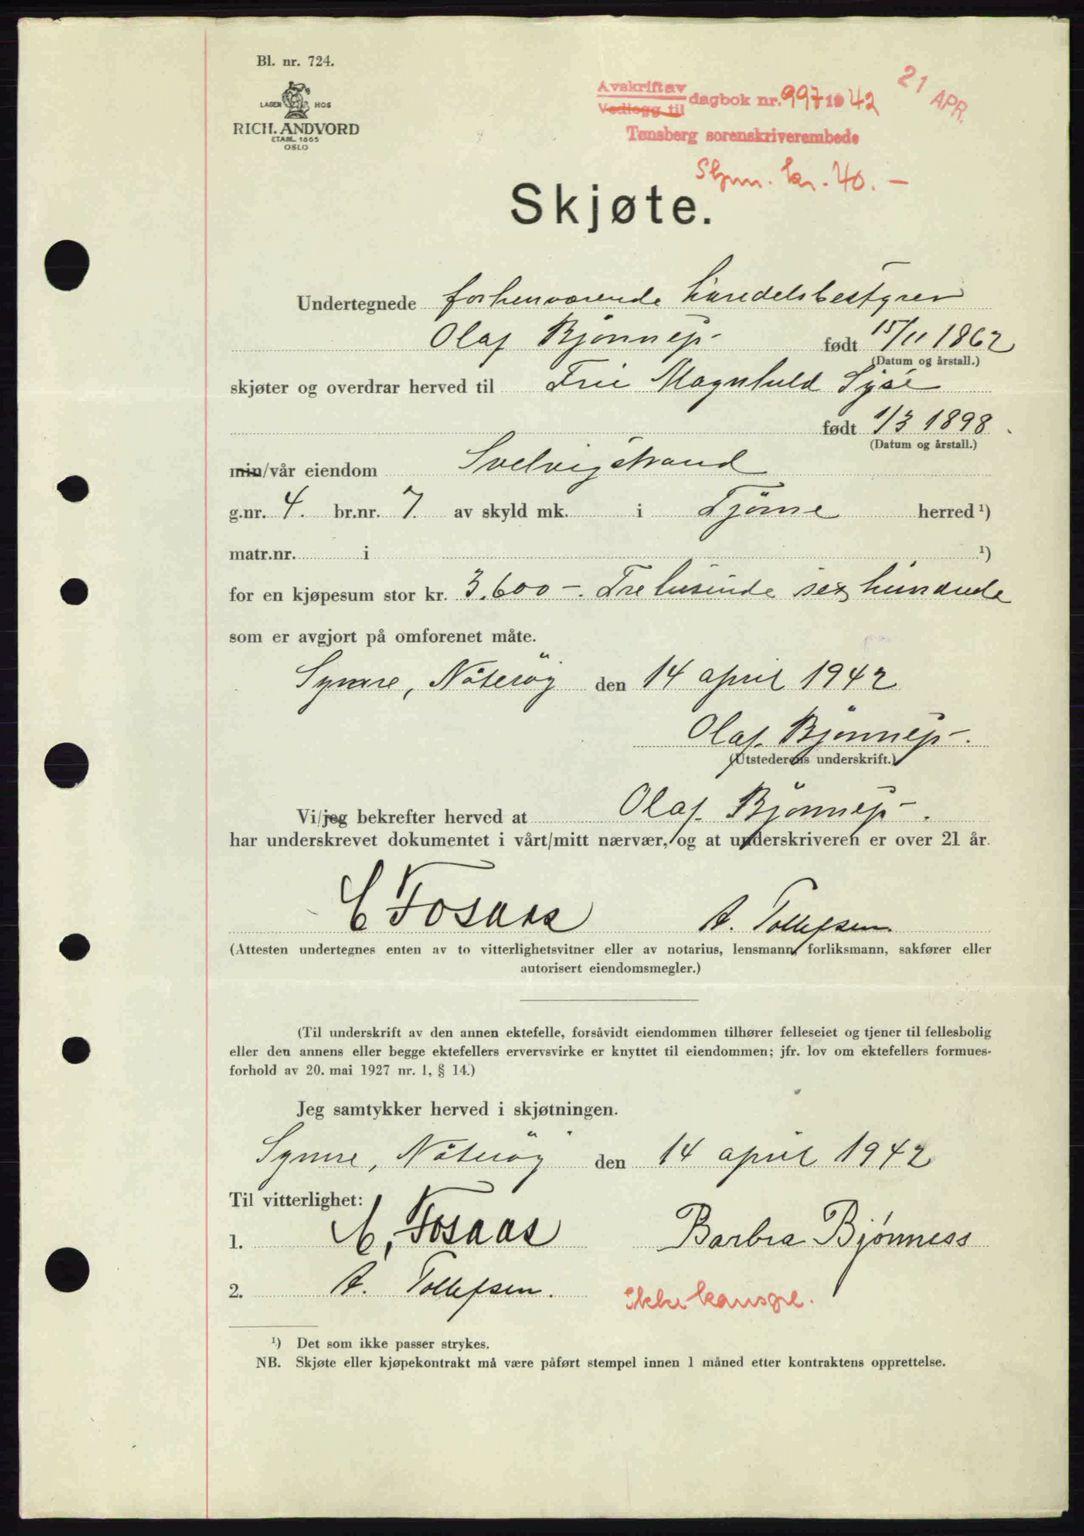 Bl. nr. 724.
LAGER HOS
RICH. ANDVORD
ETABL. 1865
OSLO
Avskrift av
Vedlegg til dagbok nr. 997 1942
Tønsberg sorenskriverembede
21 APR.
Stpm. kr. 40. –
Skjøte.
Undertegnede forhenværende handelsbestyrer
Olaf Bjønness født 15/11 1862
(Datum og årstall.)
skjøter og overdrar herved til Frie Magnhild Syse
født 1/3 1898.
(Datum og årstall.)
min/vår eiendom Svelvigstrand
g.nr. 4. br.nr. 7. av skyld mk. i Tjøme herred ¹)
matr.nr. i ¹)
for en kjøpesum stor kr. 3.600 –. Tretusinde sex hundrede
som er avgjort på omforenet måte.
Synsre, Nøterøy den 14 april 1942
Olaf Bjønness.
(Utstederens underskrift.)
Vi/jeg bekrefter herved at Olaf Bjønness.
har underskrevet dokumentet i vårt/mitt nærvær, og at underskriveren er over 21 år.
E Fosaas A. Tollefsen.
(Attesten undertegnes enten av to vitterlighetsvitner eller av notarius, lensmann, forliksmann, sakfører eller
autorisert eiendomsmegler.)
(Til underskrift av den annen ektefelle, forsåvidt eiendommen tilhører felleseiet og tjener til fellesbolig
eller den annens eller begge ektefellers ervervsvirke er knyttet til eiendommen; jfr. lov om ektefellers formues-
forhold av 20. mai 1927 nr. 1, § 14.)
Jeg samtykker herved i skjøtningen.
Synsre, Nøterøy den 14 april 1942
Til vitterlighet:
1. E. Fosaas Barbra Bjønness
2. A. Tollefsen.
Ikke konsgl.
¹) Det som ikke passer strykes.
NB. Skjøte eller kjøpekontrakt må være påført stempel innen 1 måned etter kontraktens opprettelse.